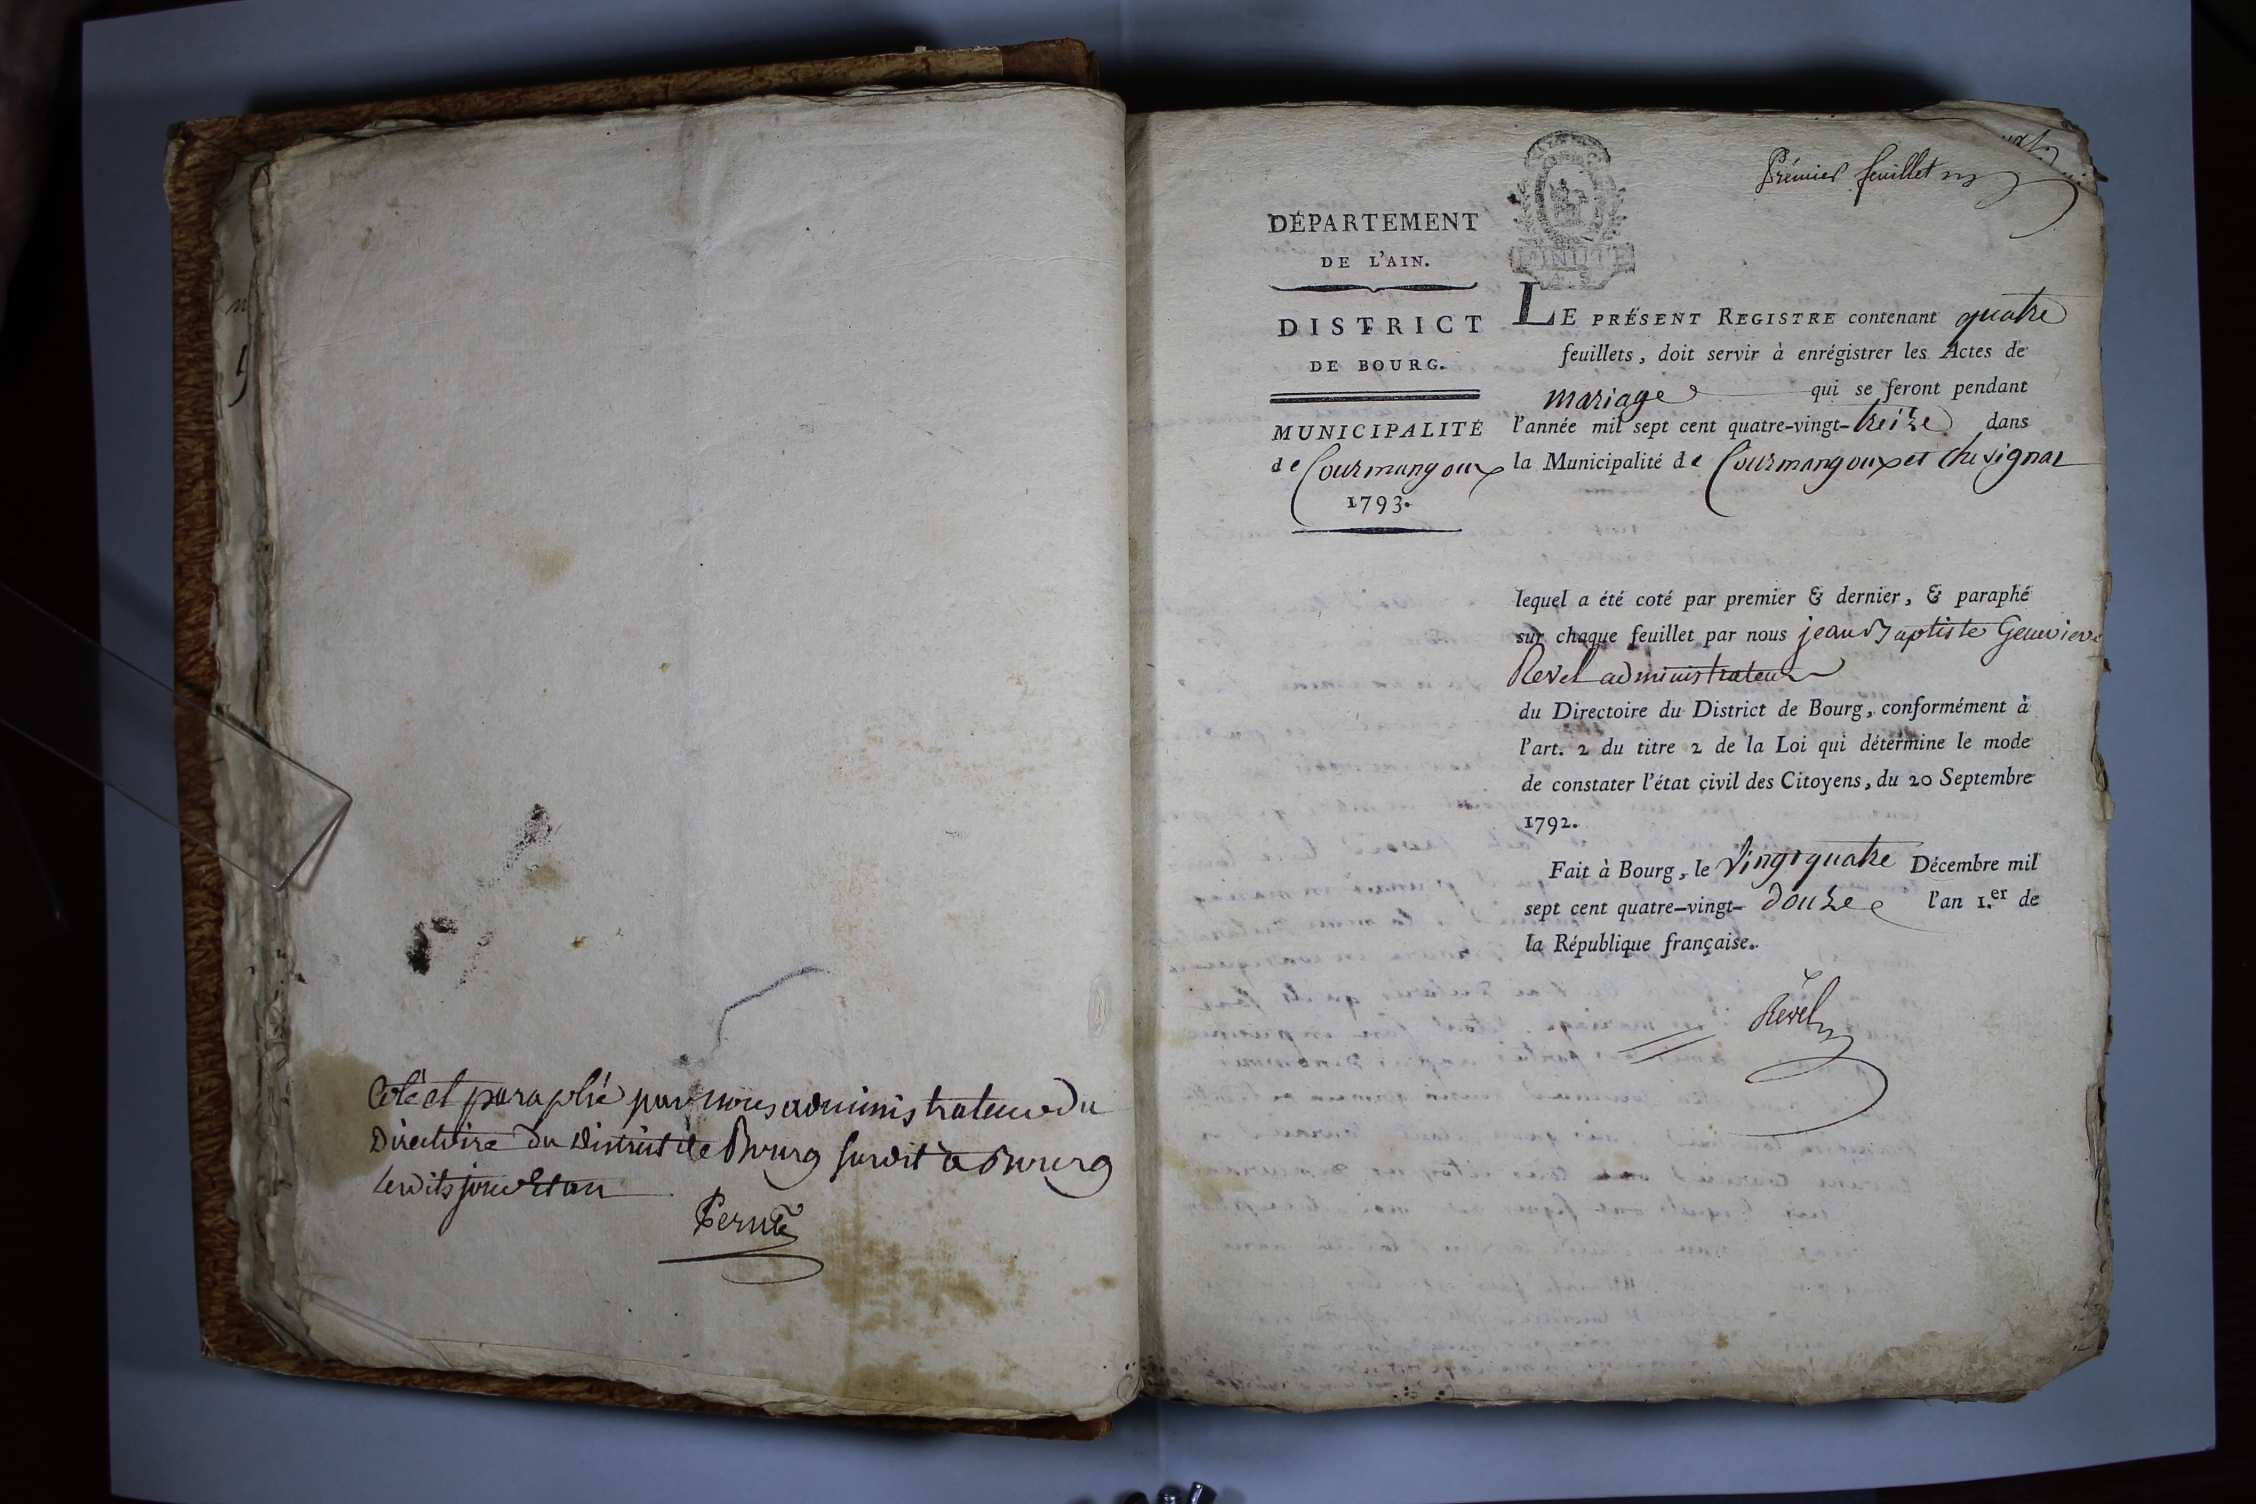 Coté et paraphé par nous administrateur du
Directoire du District de Bourg susdit à Bourg
lesdits jour et an
Prémier feuillet
DÉPARTEMENT
DE L'AIN.
DISTRICT
DE BOURG.
MUNICIPALITÉ
de Courmangoux
1793.
MINUTE
LE PRÉSENT REGISTRE contenant quatre
feuillets, doit servir à enrégistrer les Actes de
mariage qui se feront pendant
l'année mil sept cent quatre-vingt-treize dans
la Municipalité de Courmangoux et chevignat
lequel a été coté par premier & dernier, & paraphé
sur chaque feuillet par nous jean Baptiste Genevieve
Revel administrateur
du Directoire du District de Bourg, conformément à
l'art. 2 du titre 2 de la Loi qui détermine le mode
de constater l'état civil des Citoyens, du 20 Septembre
1792.
Fait à Bourg, le vingt quatre Décembre mil
sept cent quatre-vingt-douze l'an 1.er de
la République française.
Revel